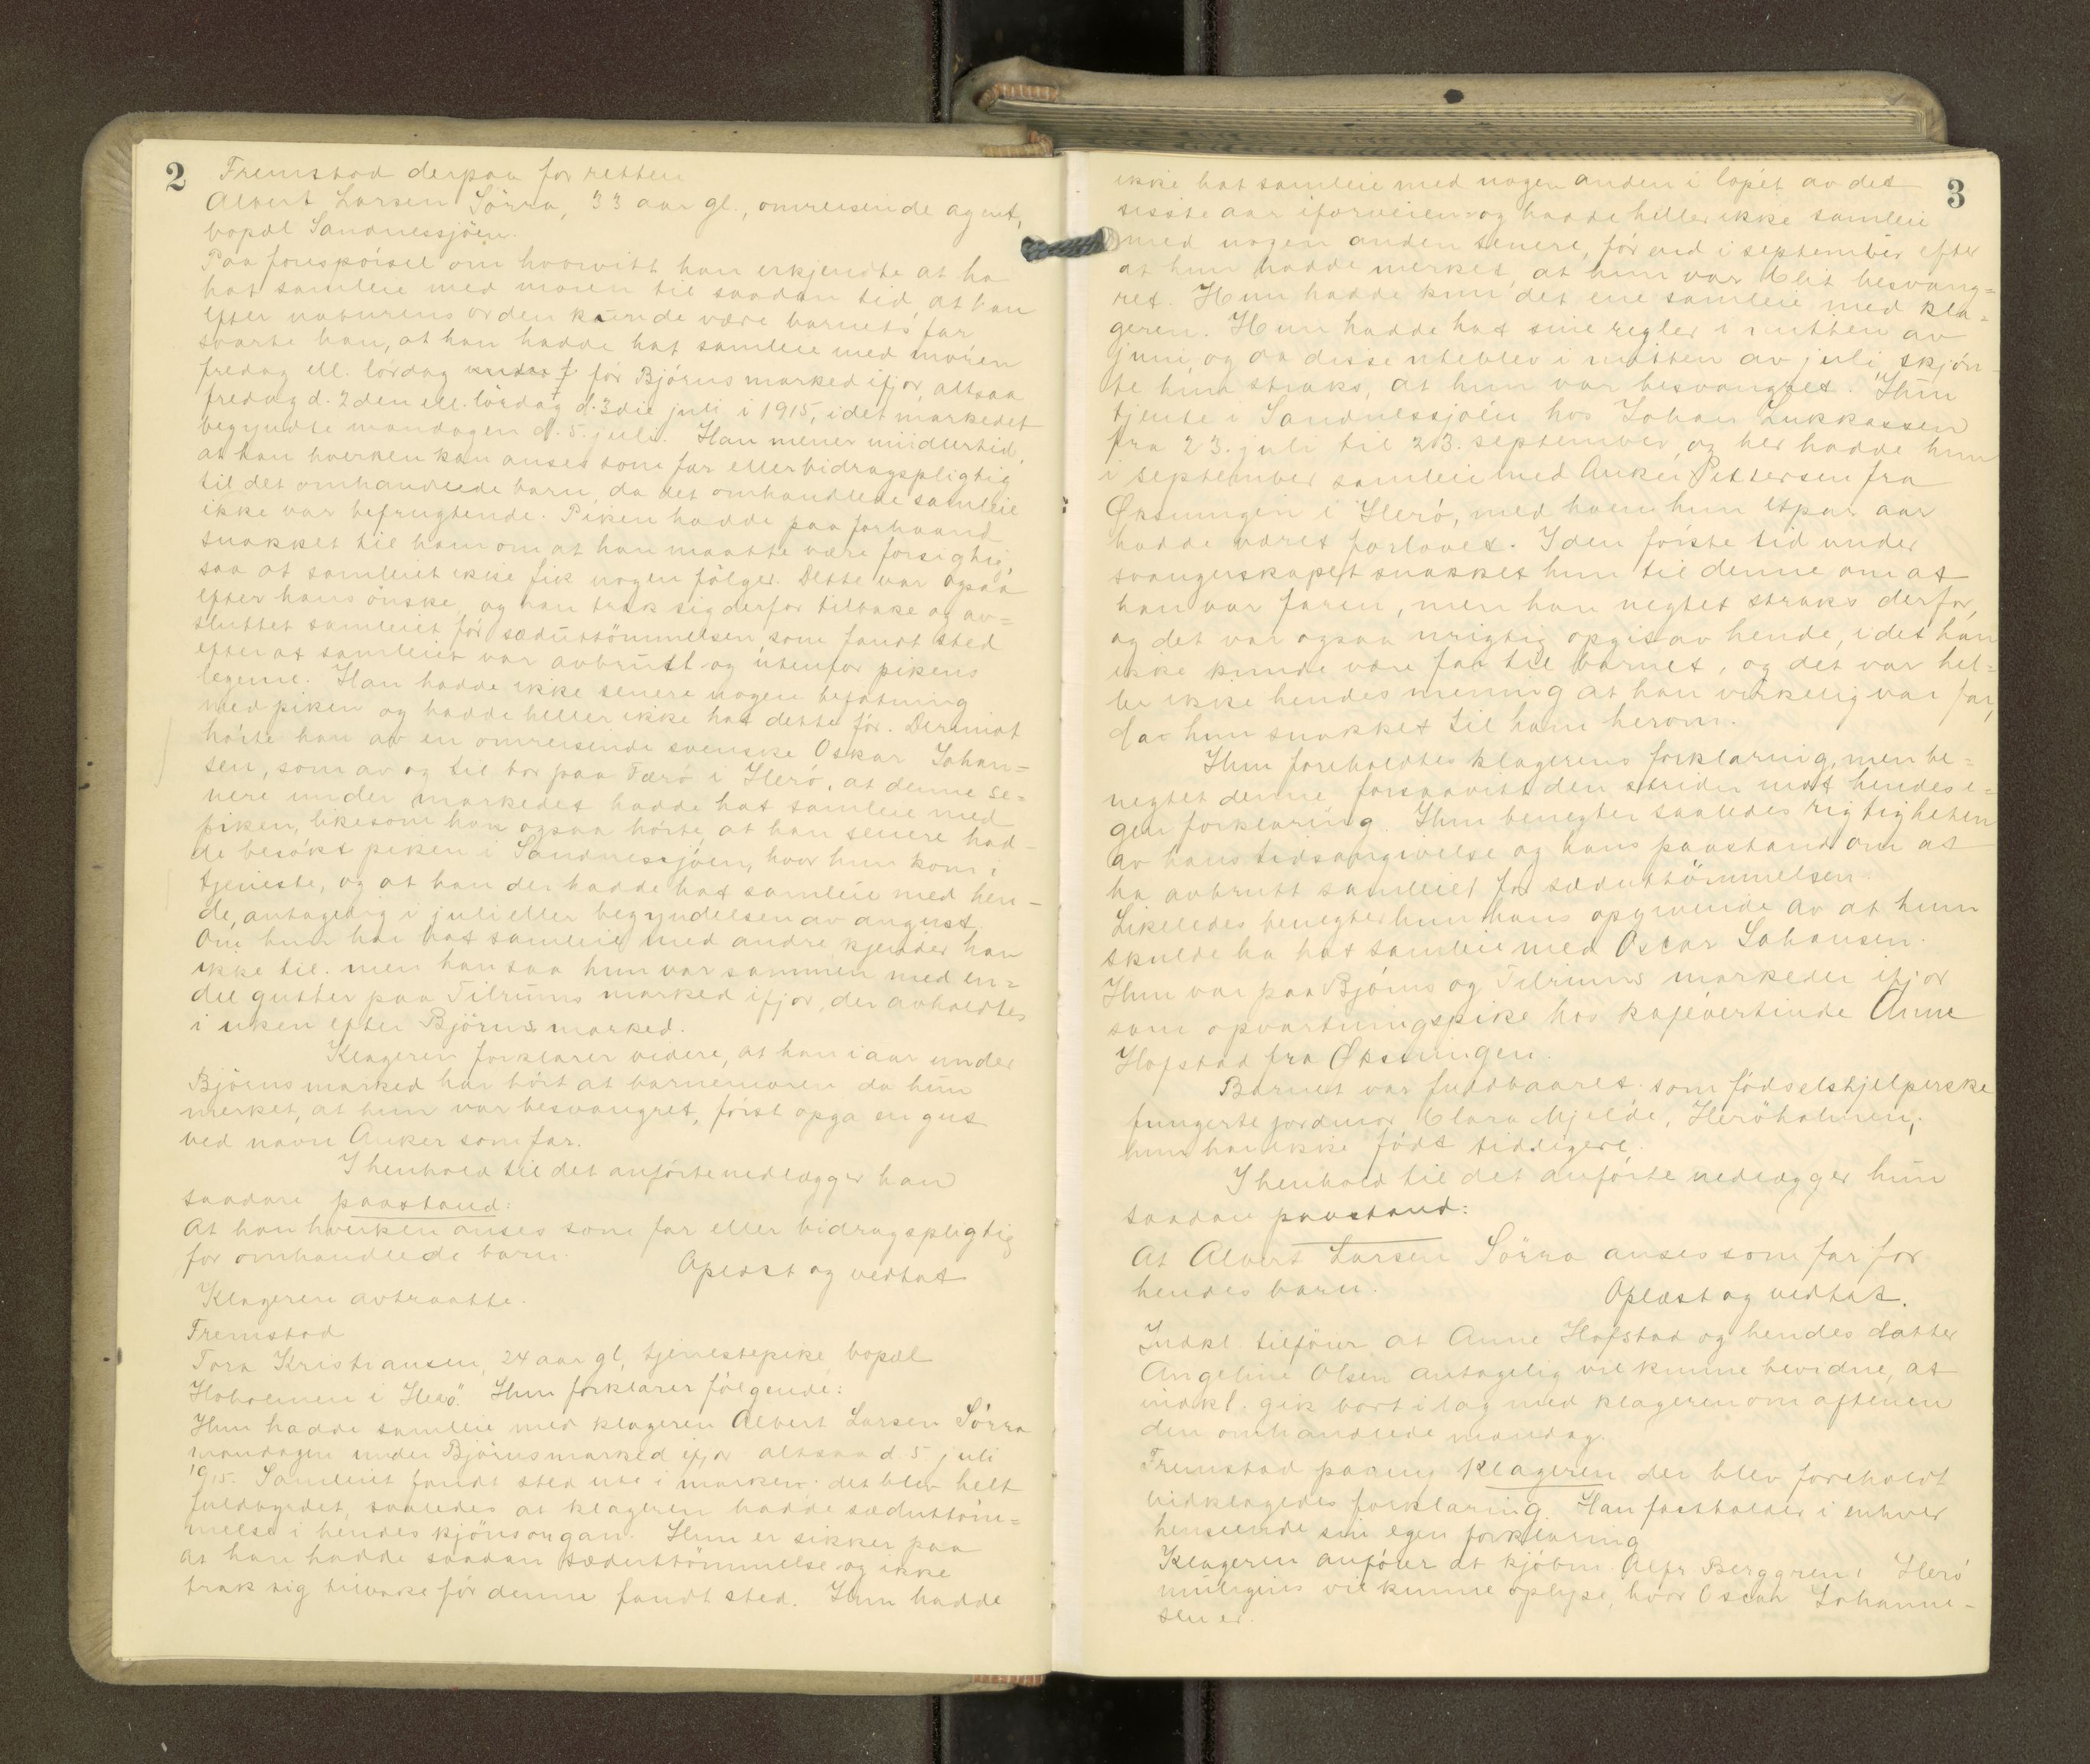 2
Fremstod derpaa for retten
Albert Larsen Sörra, 33 aar gl., omreisende agent,
bopæl Sandnessjöen.
Paa forespörsel om hvorvitt han erkjendte at ha
hat samleie med moren til saadan tid, at han
efter naturens orden kunde være barnets far
svarte han, at han hadde hat samleie med moren
fredag ell. lördag för Björns marked ifjor, altsaa
fredag d. 2den ell. lördag d. 3die juli i 1915, idet markedet
begyndte mandagen d. 5. juli. Han mener imidlertid,
at han hverken kan anses som far eller bidragspligtig
til det omhandlede barn, da det omhandlede samleie
ikke var befrugtende. Piken hadde paa forhaand
snakket til ham om at han maatte være forsigtig,
saa at samleiet ikke fik nogen fölger. Dette var ogsaa
efter hans önske, og han trak sig derfor tilbake og av=
sluttet samleiet för sæduttömmelsen, som fandt sted
efter at samleiet var avbrutt og utenfor pikens
legeme. Han hadde ikke senere nogen befatning
med piken og hadde heller ikke hat dette för. Derimot
hörte han av en omreisende svenske Oskar Johan=
sen, som av og til bor paa Færö i Herö, at denne se=
nere under markedet hadde hat samleie med
piken, likesom han ogsaa hörte, at han senere had-
de besökt piken i Sandnessjöen, hvor hun kom i
tjeneste, og at han der hadde hat samleie med hen-
de, antagelig i juli eller begyndelsen av august.
Om hun har hat samleie med andre kjender han
ikke til. men han saa hun var sammen med en=
del gutter paa Tilrums marked ifjor, der avholdtes
i uken efter Björns marked.
Klageren forklarer videre, at han i aar under
Björns marked har hört at barnemoren da hun
merket, at hun var besvangret, först opga en gut
ved navn Anker som far.
I henhold til det anförte nedlægger han
saadan paastand:
At han hverken anses som far eller bidragspligtig
for omhandlede barn.
Oplæst og vedtat
Klageren avtraatte.
Fremstod
Tora Kristiansen, 24 aar gl, tjenestepike, bopæl
Hoholmen i Herö. Hun forklarer fölgende:
Hun hadde samleie med klageren Albert Larsen Sörra
mandagen under Björnsmarked ifjor altsaa d 5 juli
1915. Samleiet fandt sted ute i marken; det blev helt
fuldbyrdet, saaledes at klageren hadde sæduttöm=
melse i hendes kjönsorgan. Hun er sikker paa
at han hadde saadan sæduttömmelse og ikke
trak sig tilbake för denne fandt sted. Hun hadde
3
ikke hat samleie med nogen anden i löpet av det
sidste aar iforveien og hadde heller ikke samleie
med nogen anden senere, för end i september efter
at hun hadde merket, at hun var blit besvang=
ret. Hun hadde kun det ene samleie med kla=
geren. Hun hadde hat sine regler i midten av
juni, og da disse uteblev i midten av juli, skjön-
te hun straks, at hun var besvangret. Hun
tjente i Sandnessjöen hos Johan Lukkassen
fra 23. juli til 23. september, og her hadde hun
i september samleie med Anker Pettersen fra
Öksningen i Herö, med hvem hun etpar aar
hadde været forlovet. I den förste tid under
svangerskapet snakket hun til denne om at
han var faren, men han negtet straks derfor,
og det var ogsaa urigtig opgit av hende, idet han
ikke kunde være far til barnet, og det var hel=
ler ikke hendes mening at han virkelig var far,
da hun snakket til ham herom.
Hun foreholdtes klagerens forklaring, men be=
negtet denne forsaavitt den strider mot hendes e=
gen forklaring. Hun benegter saaledes rigtigheten
av hans tidsangivelse og hans paastand om at
ha avbrutt samleiet för sæduttömmelsen.
Likeledes benegter hun hans opgivende av at hun
skulde ha hat samleie med Oscar Johansen.
Hun var paa Björns og Tilrums markeder ifjor
som opvartningspike hos kaféværtinde Anne
Hofstad fra Öksningen.
Barnet var fuldbaaret. som födselshjelperske
fungerte jordmor Clara Mjelde, Heröholmen;
hun har ikke födt tidligere.
I henhold til det anförte nedlægger hun
saadan paastand:
At Albert Larsen Sörra anses som far for
hendes barn.
Oplæst og vedtat.
Indkl. tilföier, at Anne Hofstad og hendes datter
Angeline Olsen antagelig vil kunne bevidne, at
indkl. gik bort i lag med klageren om aftenen
den omhandlede mandag.
Fremstod paany klageren der blev foreholdt
indklagedes forklaring. Han fastholder i enhver
henseende sin egen forklaring
Klageren anförer at kjöbm. Alfr Berggren i Herö
muligens vil kunne oplyse, hvor Oscar Johanne-
sen er.